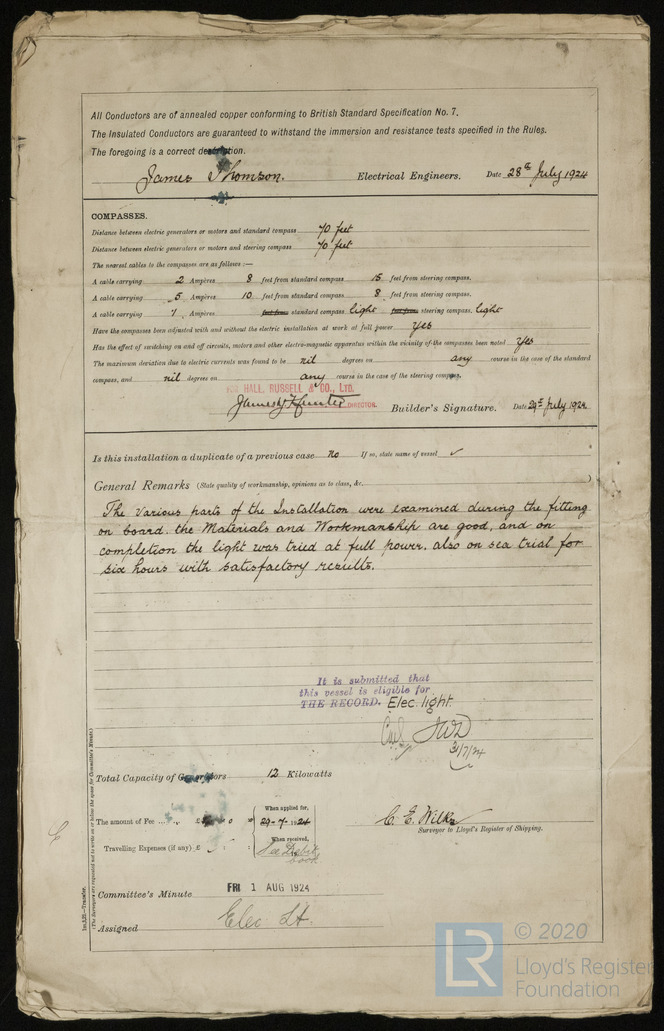 All Conductors are of annealed copper conforming to British Standard Specification No. 7.
The Insulated Conductors are guaranteed to withstand the immersion and resistance tests specified in the Rules.
The foregoing is a correct description.
James Thomson. Electrical Engineers. Date 28th July 1924
COMPASSES.
Distance between electric generators or motors and standard compass 70 feet
Distance between electric generators or motors and steering compass 70 feet
The nearest cables to the compasses are as follows:—
A cable carrying 2 Ampères 8 feet from standard compass 15 feet from steering compass.
A cable carrying 5 Ampères 10 feet from standard compass 8 feet from steering compass.
A cable carrying 1 Ampères feet from standard compass light feet from steering compass. light
Have the compasses been adjusted with and without the electric installation at work at full power yes
Has the effect of switching on and off circuits, motors and other electro-magnetic apparatus within the vicinity of the compasses been noted yes
The maximum deviation due to electric currents was found to be nil degrees on any course in the case of the standard
compass, and nil degrees on any course in the case of the steering compass.
FOR HALL, RUSSELL & CO., LTD.
DIRECTOR. Builder's Signature. Date 29th July 1924
Is this installation a duplicate of a previous case no If so, state name of vessel ✓
General Remarks (State quality of workmanship, opinions as to class, &c.)
The various parts of the Installation were examined during the fitting
on board. the Materials and Workmanship are good, and on
completion the light was tried at full power. also on sea trial for
six hours with satisfactory results.
It is submitted that
this vessel is eligible for
THE RECORD. Elec. light.
31/7/24
Total Capacity of Generators 12 Kilowatts
The amount of Fee ... £ When applied for, 29-7-1924
C. E. Wilks
Surveyor to Lloyd's Register of Shipping.
Travelling Expenses (if any) £ When received, See Debit book
Committee's Minute FRI 1 AUG 1924
Assigned Elec Lt.
(The Surveyors are requested not to write on or below the space for Committee's Minute.)
LR © 2020
Lloyd's Register
Foundation